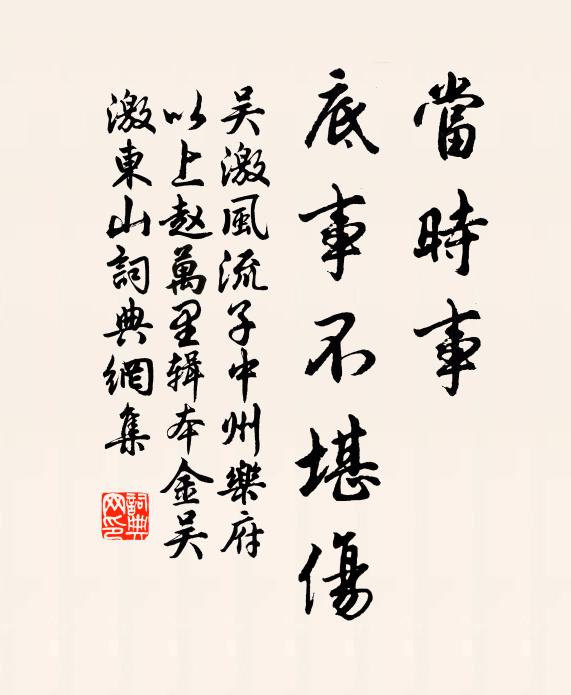 當時事
底事不堪傷
吳激風流子中州樂府
以上赵萬里輯本金吴
激東山詞典網集
詞典网印